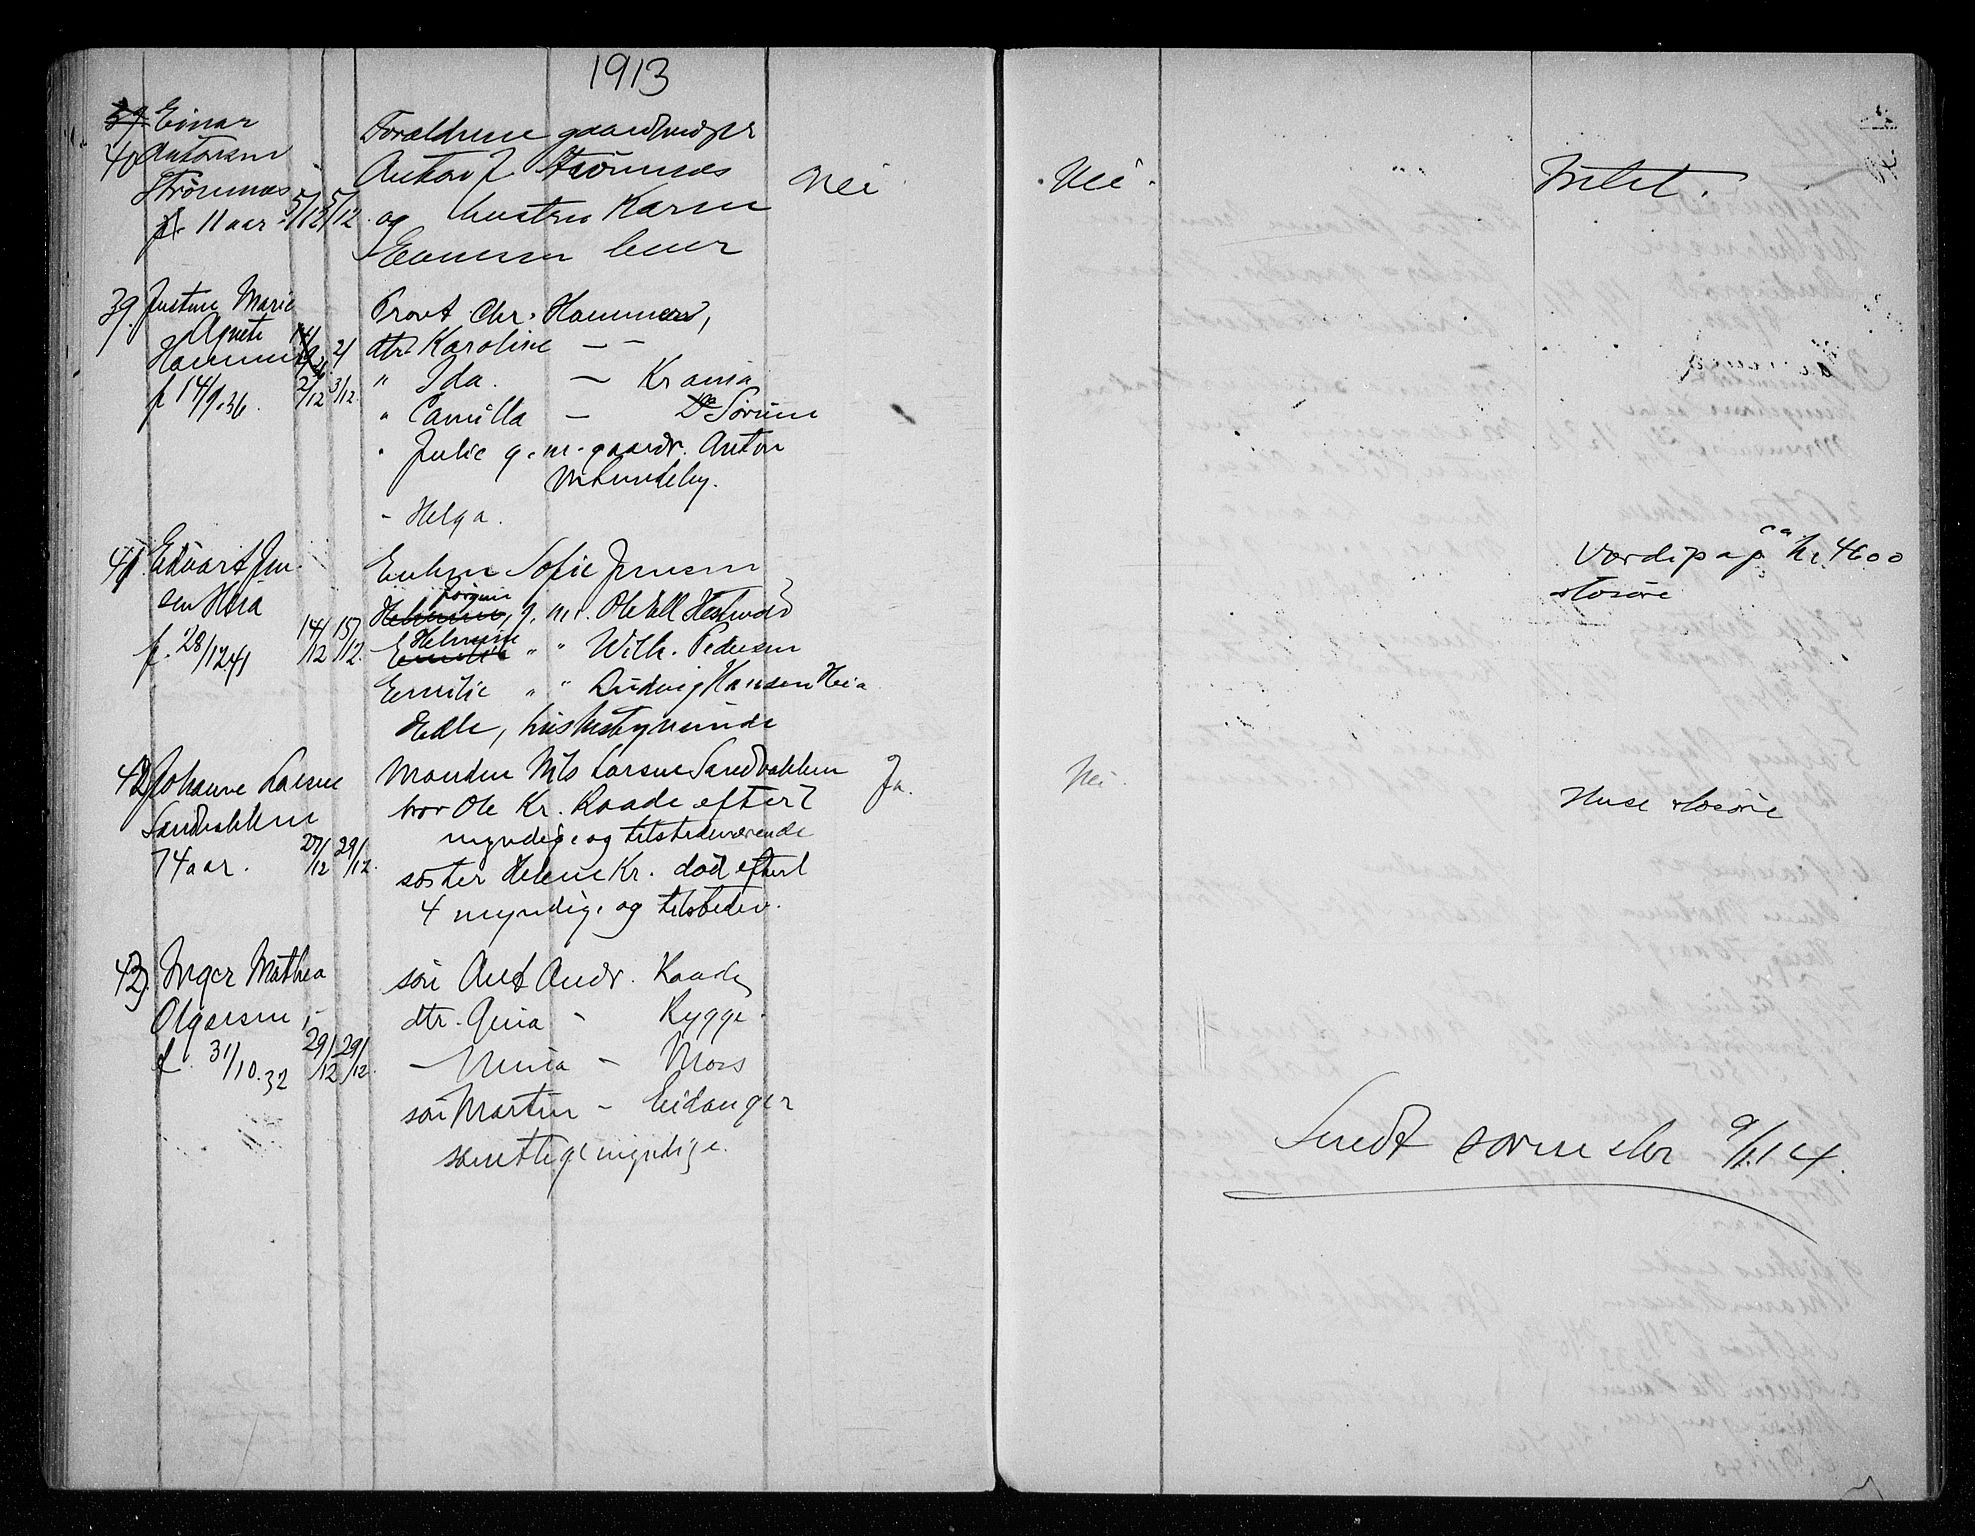 1913
39 Einar
40 Antonsen
Strømnæs
f. 11 aar 5/12 5/12
Forældrene gaardbruger
Anton J Strømnæs
og hustru Karen
Nei
Nei
Intet.
39. Justine Marie
Agnete
Hammer
f 14/9.36. 2/12 3/12
Provt Chr. Hammer,
dtr Karoline — —
" Ida. — Krania
" Camilla — Do Sørum
" Julie g. m. gaardbr. Anton
Lundeby.
- Helga.
41. Edvart Jen-
sen Heia
f. 28/12 41 14/12 15/12
Enken Sofie Jensen
Jørgine
Helmine, g. m. Ole Ell Hestvold
Helmine
Emilie " " Wilh. Pedersen
Emilie " " Ludvig Hansen Heia
Edle, husbestyrerinde
ca
Værdipap kr. 4600
+ løsøre
42 Johanne Larsine
Sandbakken
74 aar. 27/12 29/12
Manden Nils Larsen Sandbakken
bror Ole Kr. Raade efterl
myndige og tilstedeværende
søster Helene Kr. død efterl
4 myndige og tilstedev.
Ja.
Nei.
Huse + løsøre
43. Inger Mathea
Olgersen
f. 31/10.32 29/12 29/12
søn Ant Andr. Raade
dtr. Gina - Rygge
— Mina — Moss
søn Martin - Eidanger
samtlige myndige.
Sendt sorenskr 9/1.14.